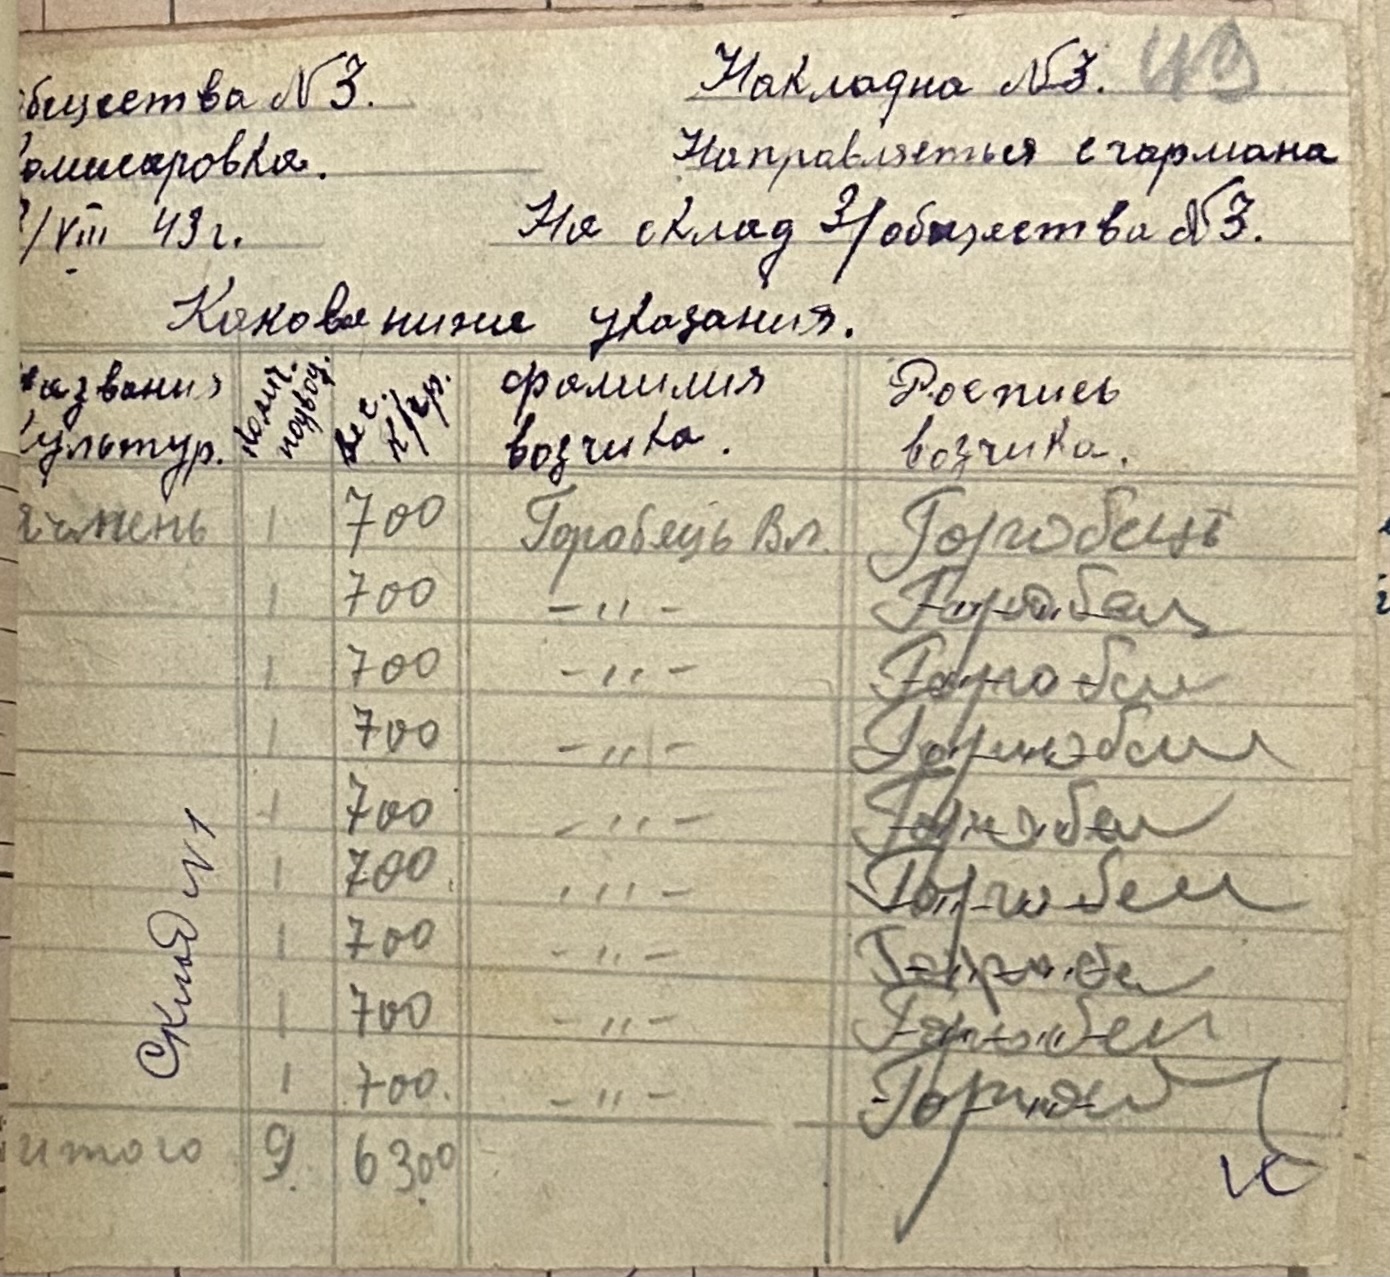 бщества №3. Накладна №3. 49
омисаровка. Направляеться с гармана
/VIII 43 г. На склад З/общества №3.
Какова ниже указания.
названия Колич. Вес. фамилия Роспись
культур. подвод. К/гр. возчика. возчика.
Ячмень 1 700 Горобець Вл. Горобець
1 700 -"- Горобец
1 700 -"- Горобец
1 700 -"- Горобец
1 700 -"- Горобец
1 700 -"- Горобец
1 700 -"- Горобец
1 700 -"- Горобец
1 700. -"-
итого 9. 6300
Склад №1